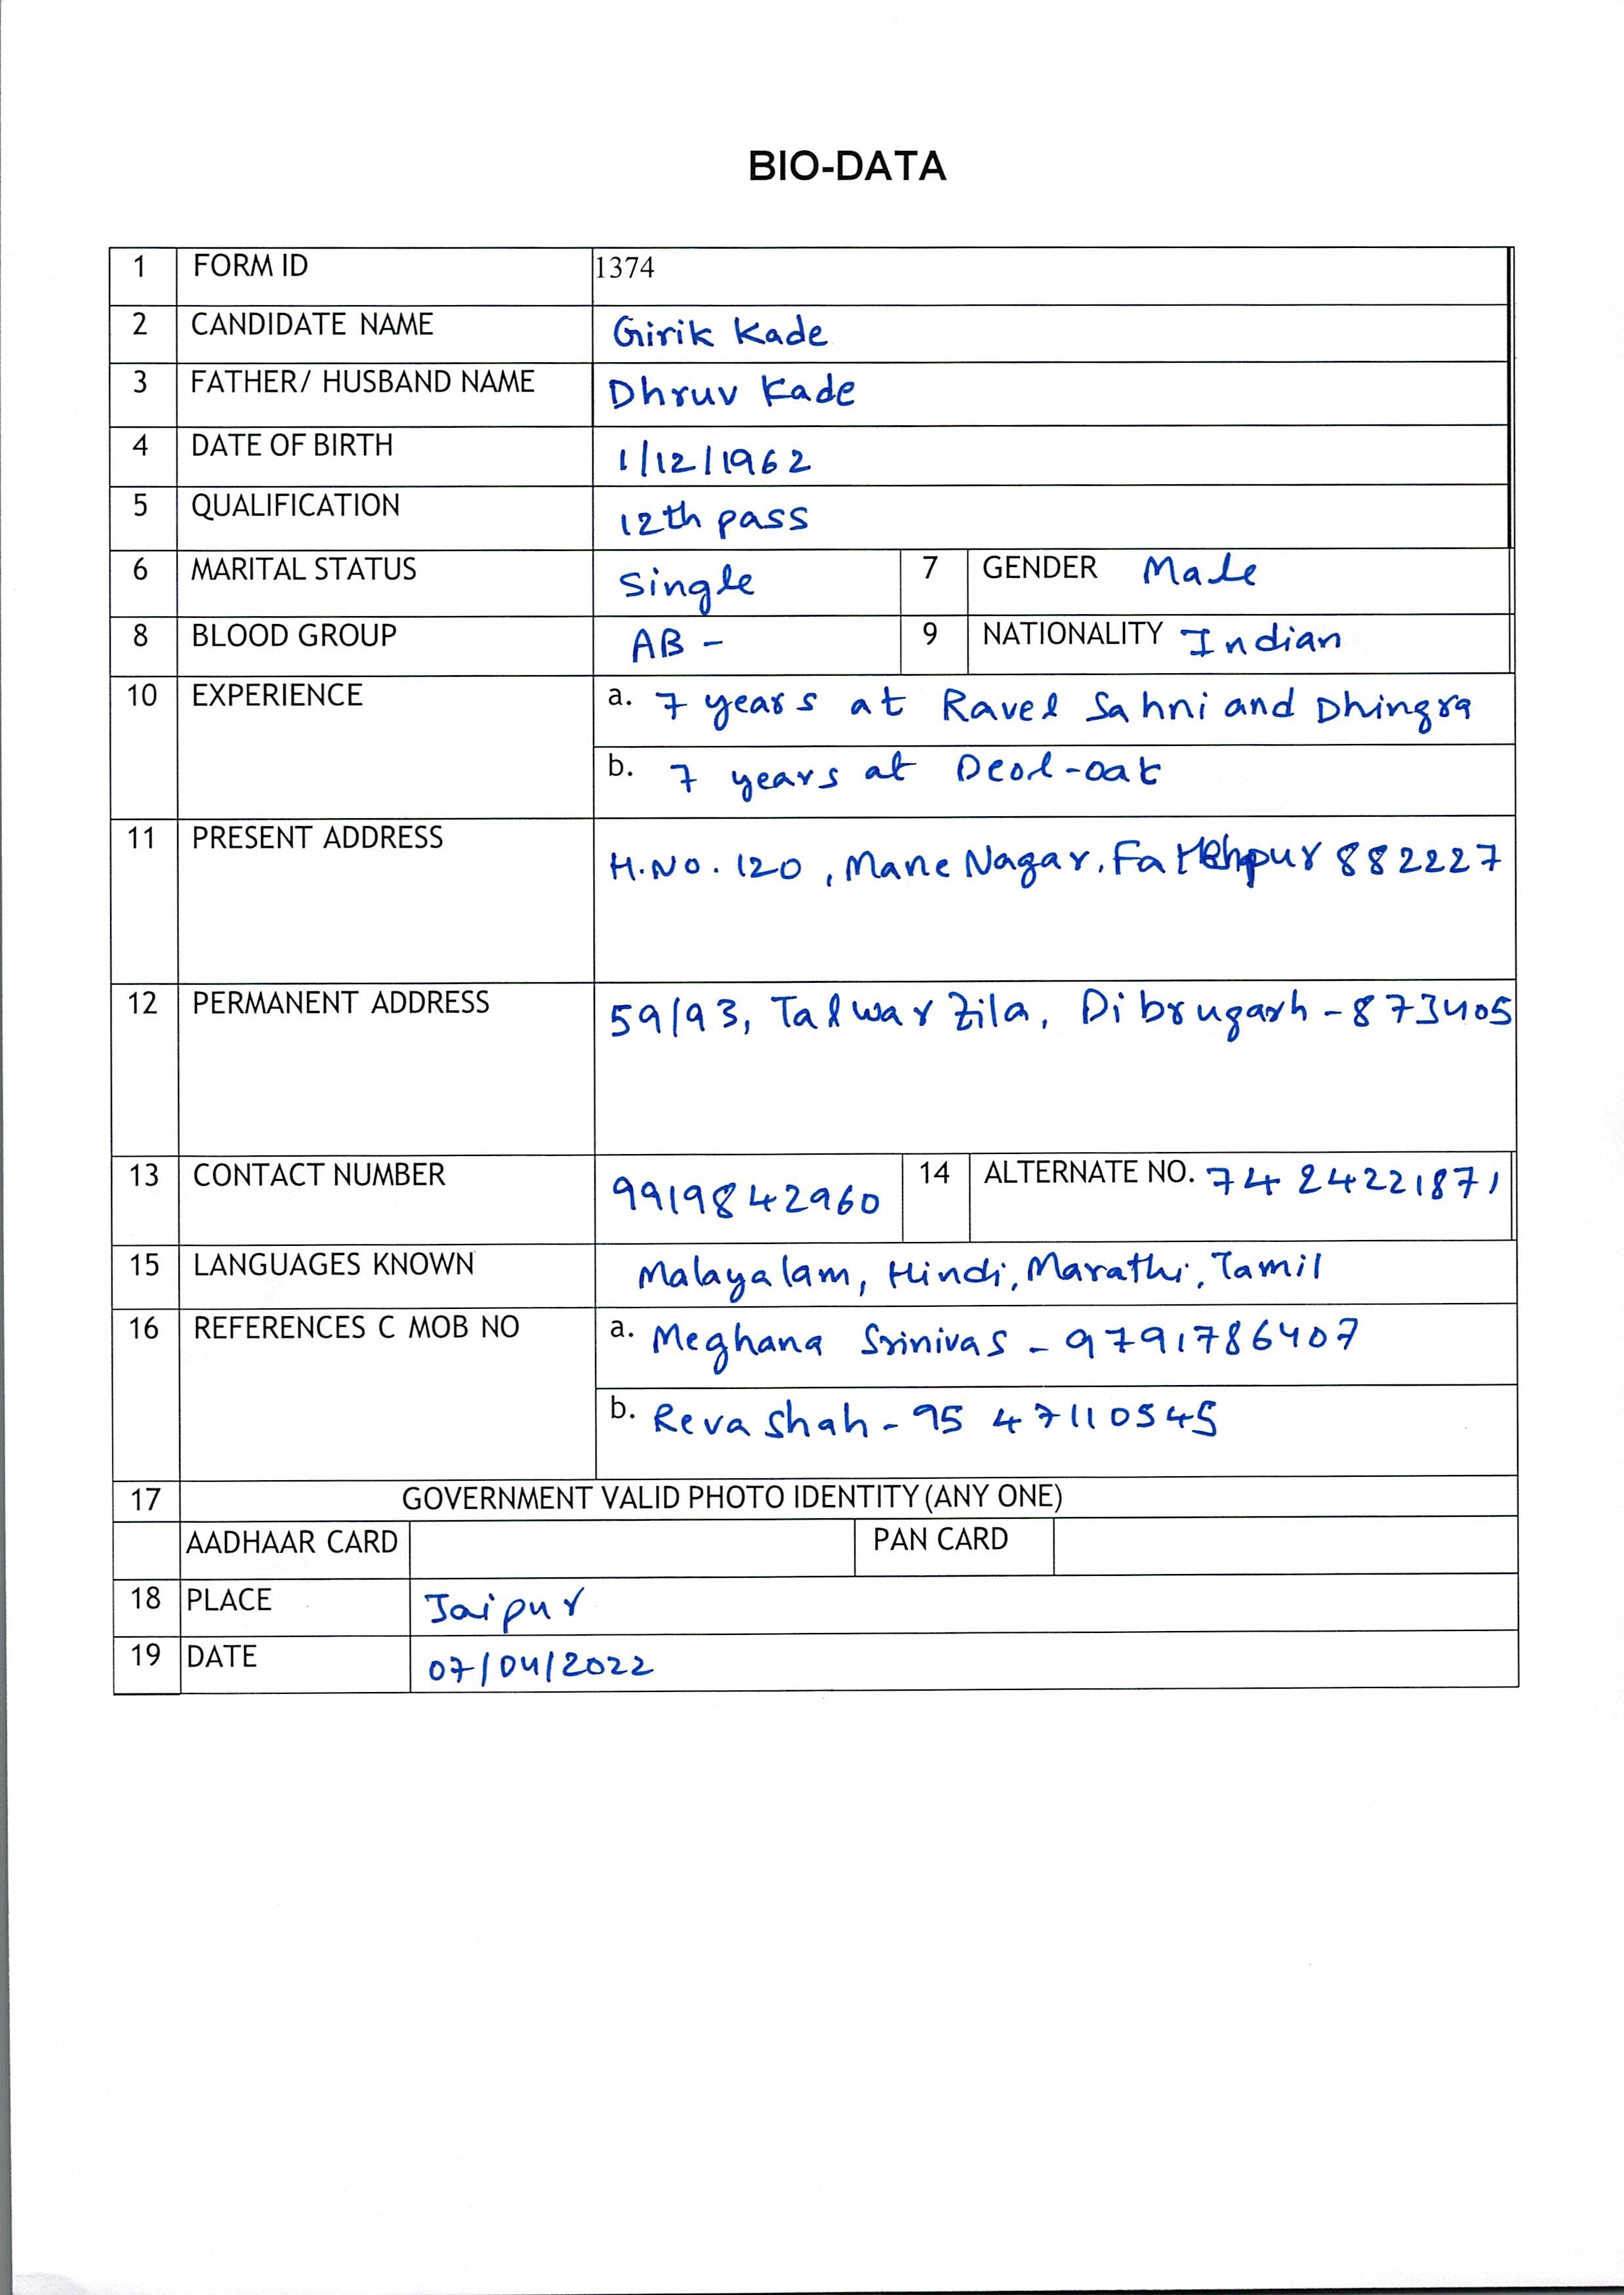 BIO-DATA
1 FORM ID 1374
2 CANDIDATE NAME Girik Kade
3 FATHER/ HUSBAND NAME Dhruv Kade
4 DATE OF BIRTH 1/12/1962
5 QUALIFICATION 12th pass
6 MARITAL STATUS Single 7 GENDER Male
8 BLOOD GROUP AB - 9 NATIONALITY Indian
10 EXPERIENCE a. 7 years at Ravel Sahni and Dhingra
b. 7 years at Deol-oak
11 PRESENT ADDRESS H.No. 120, Mane Nagar, 882227
12 PERMANENT ADDRESS 59/93, Talwar Zila, Dibrugarh - 873405
13 CONTACT NUMBER 9919842960 14 ALTERNATE NO. 7424221871
15 LANGUAGES KNOWN Malayalam, Hindi, Marathi, Tamil
16 REFERENCES C MOB NO a. Meghana Srinivas - 9791786407
b. Reva Shah - 95 47110545
17 GOVERNMENT VALID PHOTO IDENTITY (ANY ONE)
AADHAAR CARD PAN CARD
18 PLACE Jaipur
19 DATE 07/04/2022